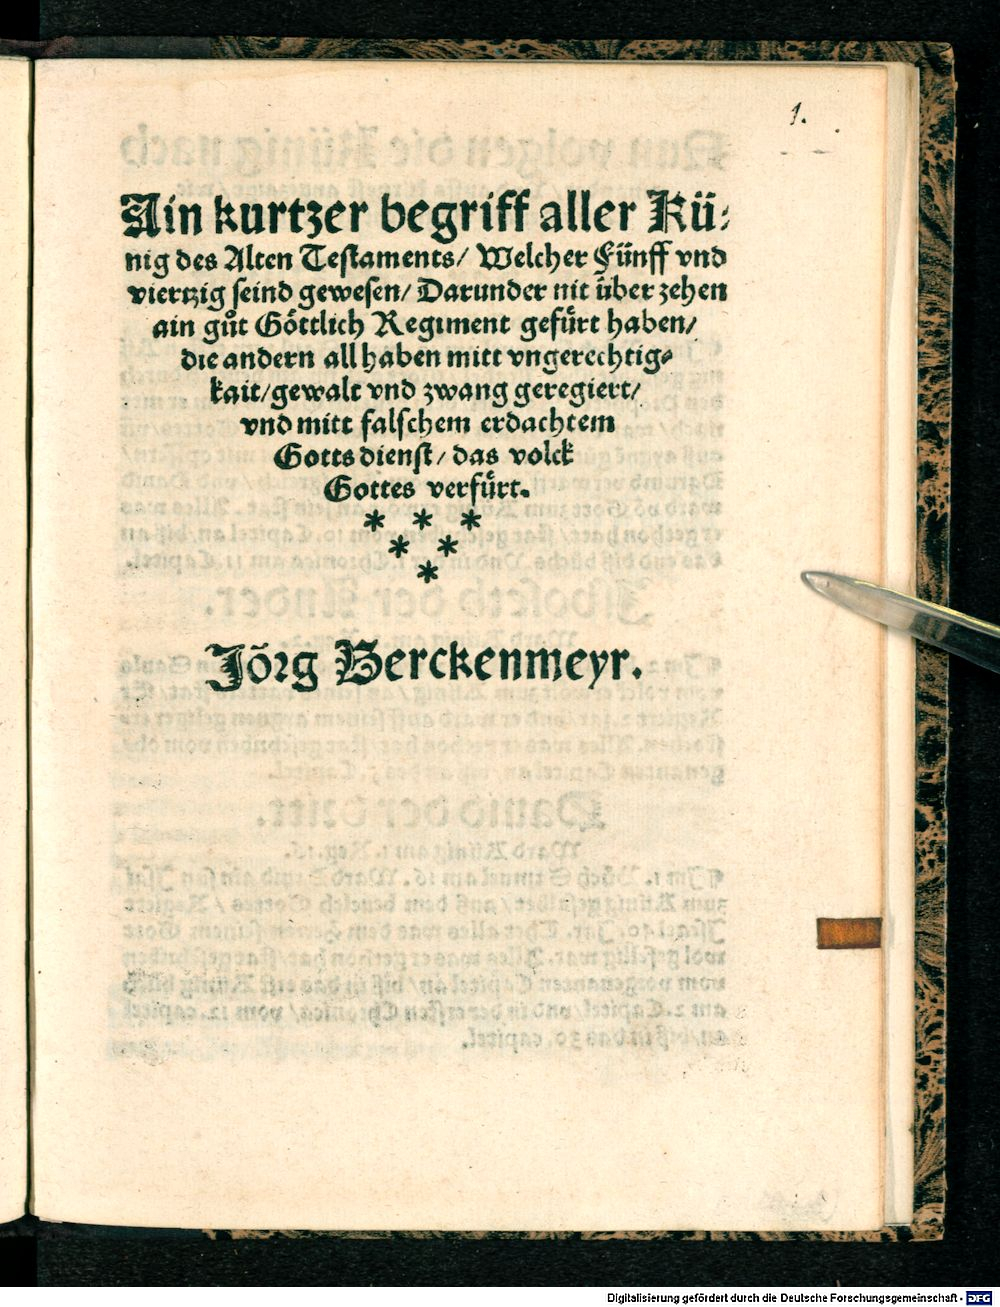 1.
Ain kurtzer begriff aller Kü⸗
nig des Alten Testaments/ Welcher Fünff vnd
viertzig seind gewesen/ Darunder nit über zehen
ain gůt Göttlich Regiment gefürt haben/
die andern all haben mitt vngerechtig⸗
kait/ gewalt vnd zwang geregiert/
vnd mitt falschem erdachtem
Gotts dienst/ das volck
Gottes verfürt.
* * *
* *
*
Jörg Berckenmeyr.
Digitalisierung gefördert durch die Deutsche Forschungsgemeinschaft - DFG